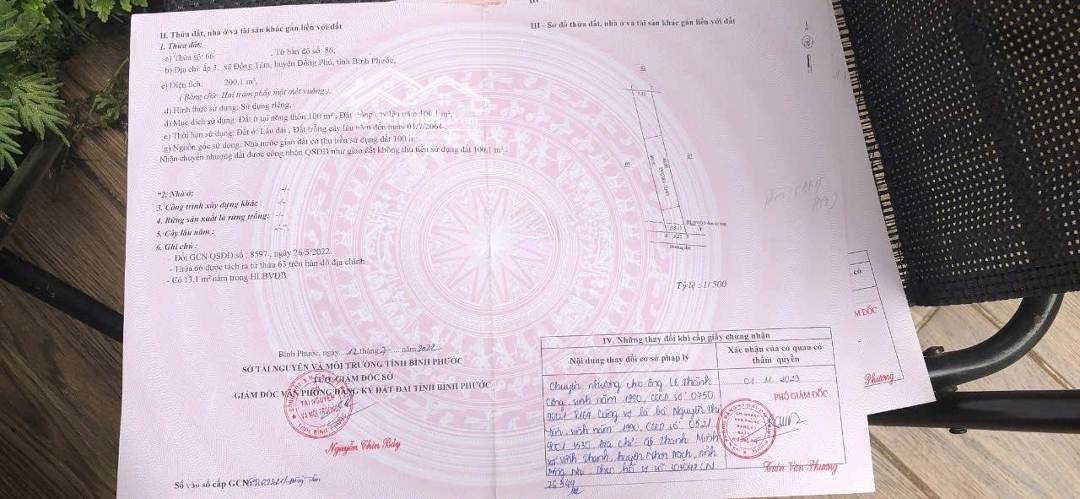 II. Thửa đất, nhà ở và tài sản khác gắn liền với đất
1. Thửa đất:
a) Thửa số: 66 , Tờ bản đồ số: 86,
b) Địa chỉ: ấp 3, xã Đồng Tâm, huyện Đồng Phú, tỉnh Bình Phước,
c) Diện tích: 200,1 m²,
( Bằng chữ: Hai trăm phẩy một mét vuông ),
d) Hình thức sử dụng: Sử dụng riêng,
đ) Mục đích sử dụng: Đất ở tại nông thôn 100 m², Đất trồng cây lâu năm 100,1 m²,
e) Thời hạn sử dụng: Đất ở: Lâu dài, Đất trồng cây lâu năm đến ngày 01/7/2064
g) Nguồn gốc sử dụng: Nhà nước giao đất có thu tiền sử dụng đất 100 m²
Nhận chuyển nhượng đất được công nhận QSDĐ như giao đất không thu tiền sử dụng đất 100,1 m².
*2. Nhà ở: -/-
3. Công trình xây dựng khác: -/-
4. Rừng sản xuất là rừng trồng: -/-
5. Cây lâu năm : -/-
6. Ghi chú :
- Đổi GCN QSDĐ số : 8597, ngày 26/5/2022.
- Thửa 66 được tách ra từ thửa 63 trên bản đồ địa chính
- Có 13,1 m² nằm trong HLBVĐB
Bình Phước, ngày 12 tháng 7 năm 2022
SỞ TÀI NGUYÊN VÀ MÔI TRƯỜNG TỈNH BÌNH PHƯỚC
TUQ. GIÁM ĐỐC SỞ
GIÁM ĐỐC VĂN PHÒNG ĐĂNG KÝ ĐẤT ĐAI TỈNH BÌNH PHƯỚC
TÀI NGUYÊN
VÀ MÔI TRƯỜNG
TỈNH BÌNH PHƯỚC
Nguyễn Thìn Bảy
Số vào sổ cấp GCN
III - Sơ đồ thửa đất, nhà ở và tài sản khác gắn liền với đất
Đường đất
Tỷ lệ : 1/500
IV. Những thay đổi khi cấp giấy chứng nhận
Nội dung thay đổi cơ sở pháp lý
Xác nhận của cơ quan có thẩm quyền
Chuyển nhượng cho ông Lê Thành
Công, sinh năm 1990, CCCD số 0750
cùng vợ là bà Nguyễn Thị
sinh năm 1990, CCCD số 0521
Địa chỉ: ấp Thanh Minh
xã Vĩnh Thanh, huyện Nhơn Trạch, tỉnh
Đồng Nai, theo hồ sơ số
01.11.2023
PHÓ GIÁM ĐỐC
Trần Văn Phương
có
M ĐỐC
Phương